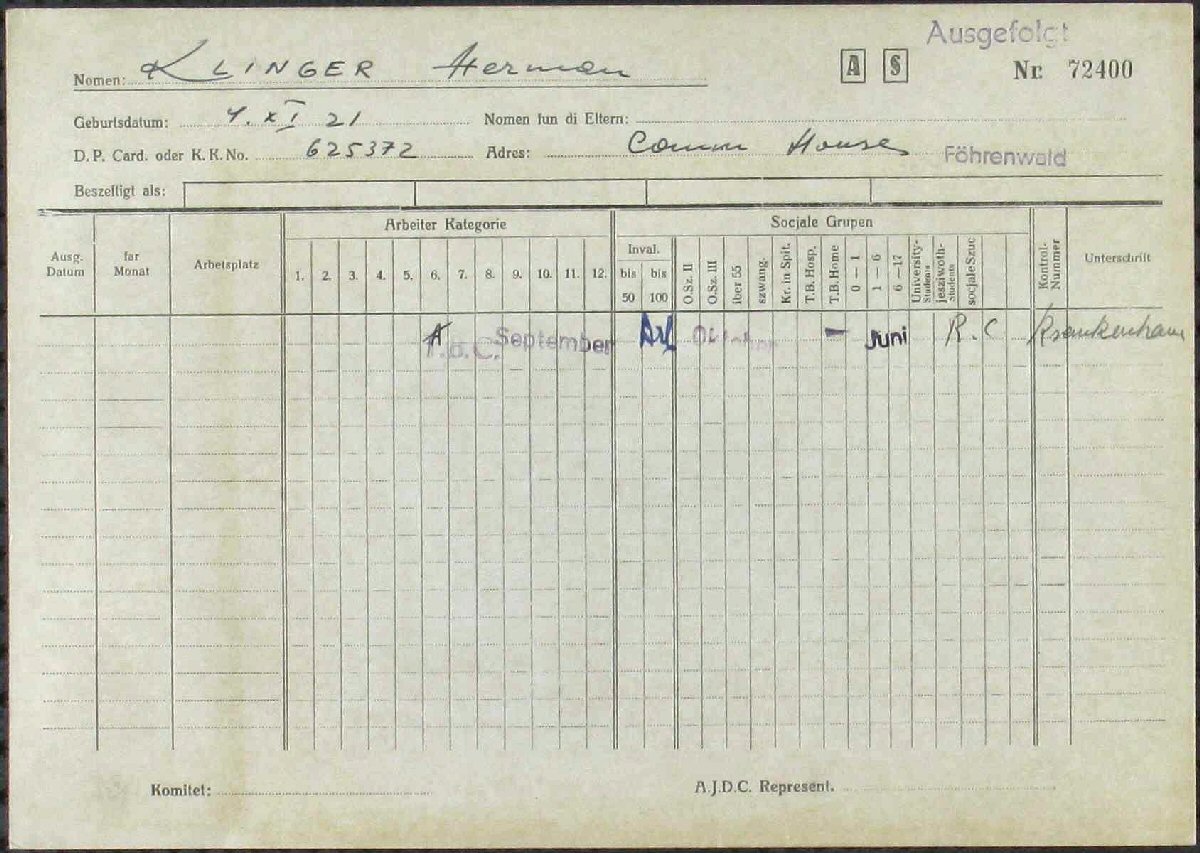 Ausgefolgt
Nomen: KLINGER Herman A S Nr. 72400
Geburtsdatum: 4. XI 21 Nomen fun di Eltern:
D. P. Card. oder K. K. No. 625372 Adres: Comm House Föhrenwald
Beszefligt als:
Ausg. Datum far Monat Arbeitsplatz Arbeiter Kategorie Socjale Grupen Kontrol-Nummer Unterschrift
1. 2. 3. 4. 5. 6. 7. 8. 9. 10. 11. 12. Inval. bis 50 bis 100 O.Sz. II O.Sz. III iber 55 szwang. Kr. in Spit. T.B. Hosp. T.B. Home 0 — 1 1 — 6 6 — 17 University-Students jesziwoth-Students socjale Szuc
A September Juni R.C Krankenhaus
Komitet: A.J.D.C. Represent.